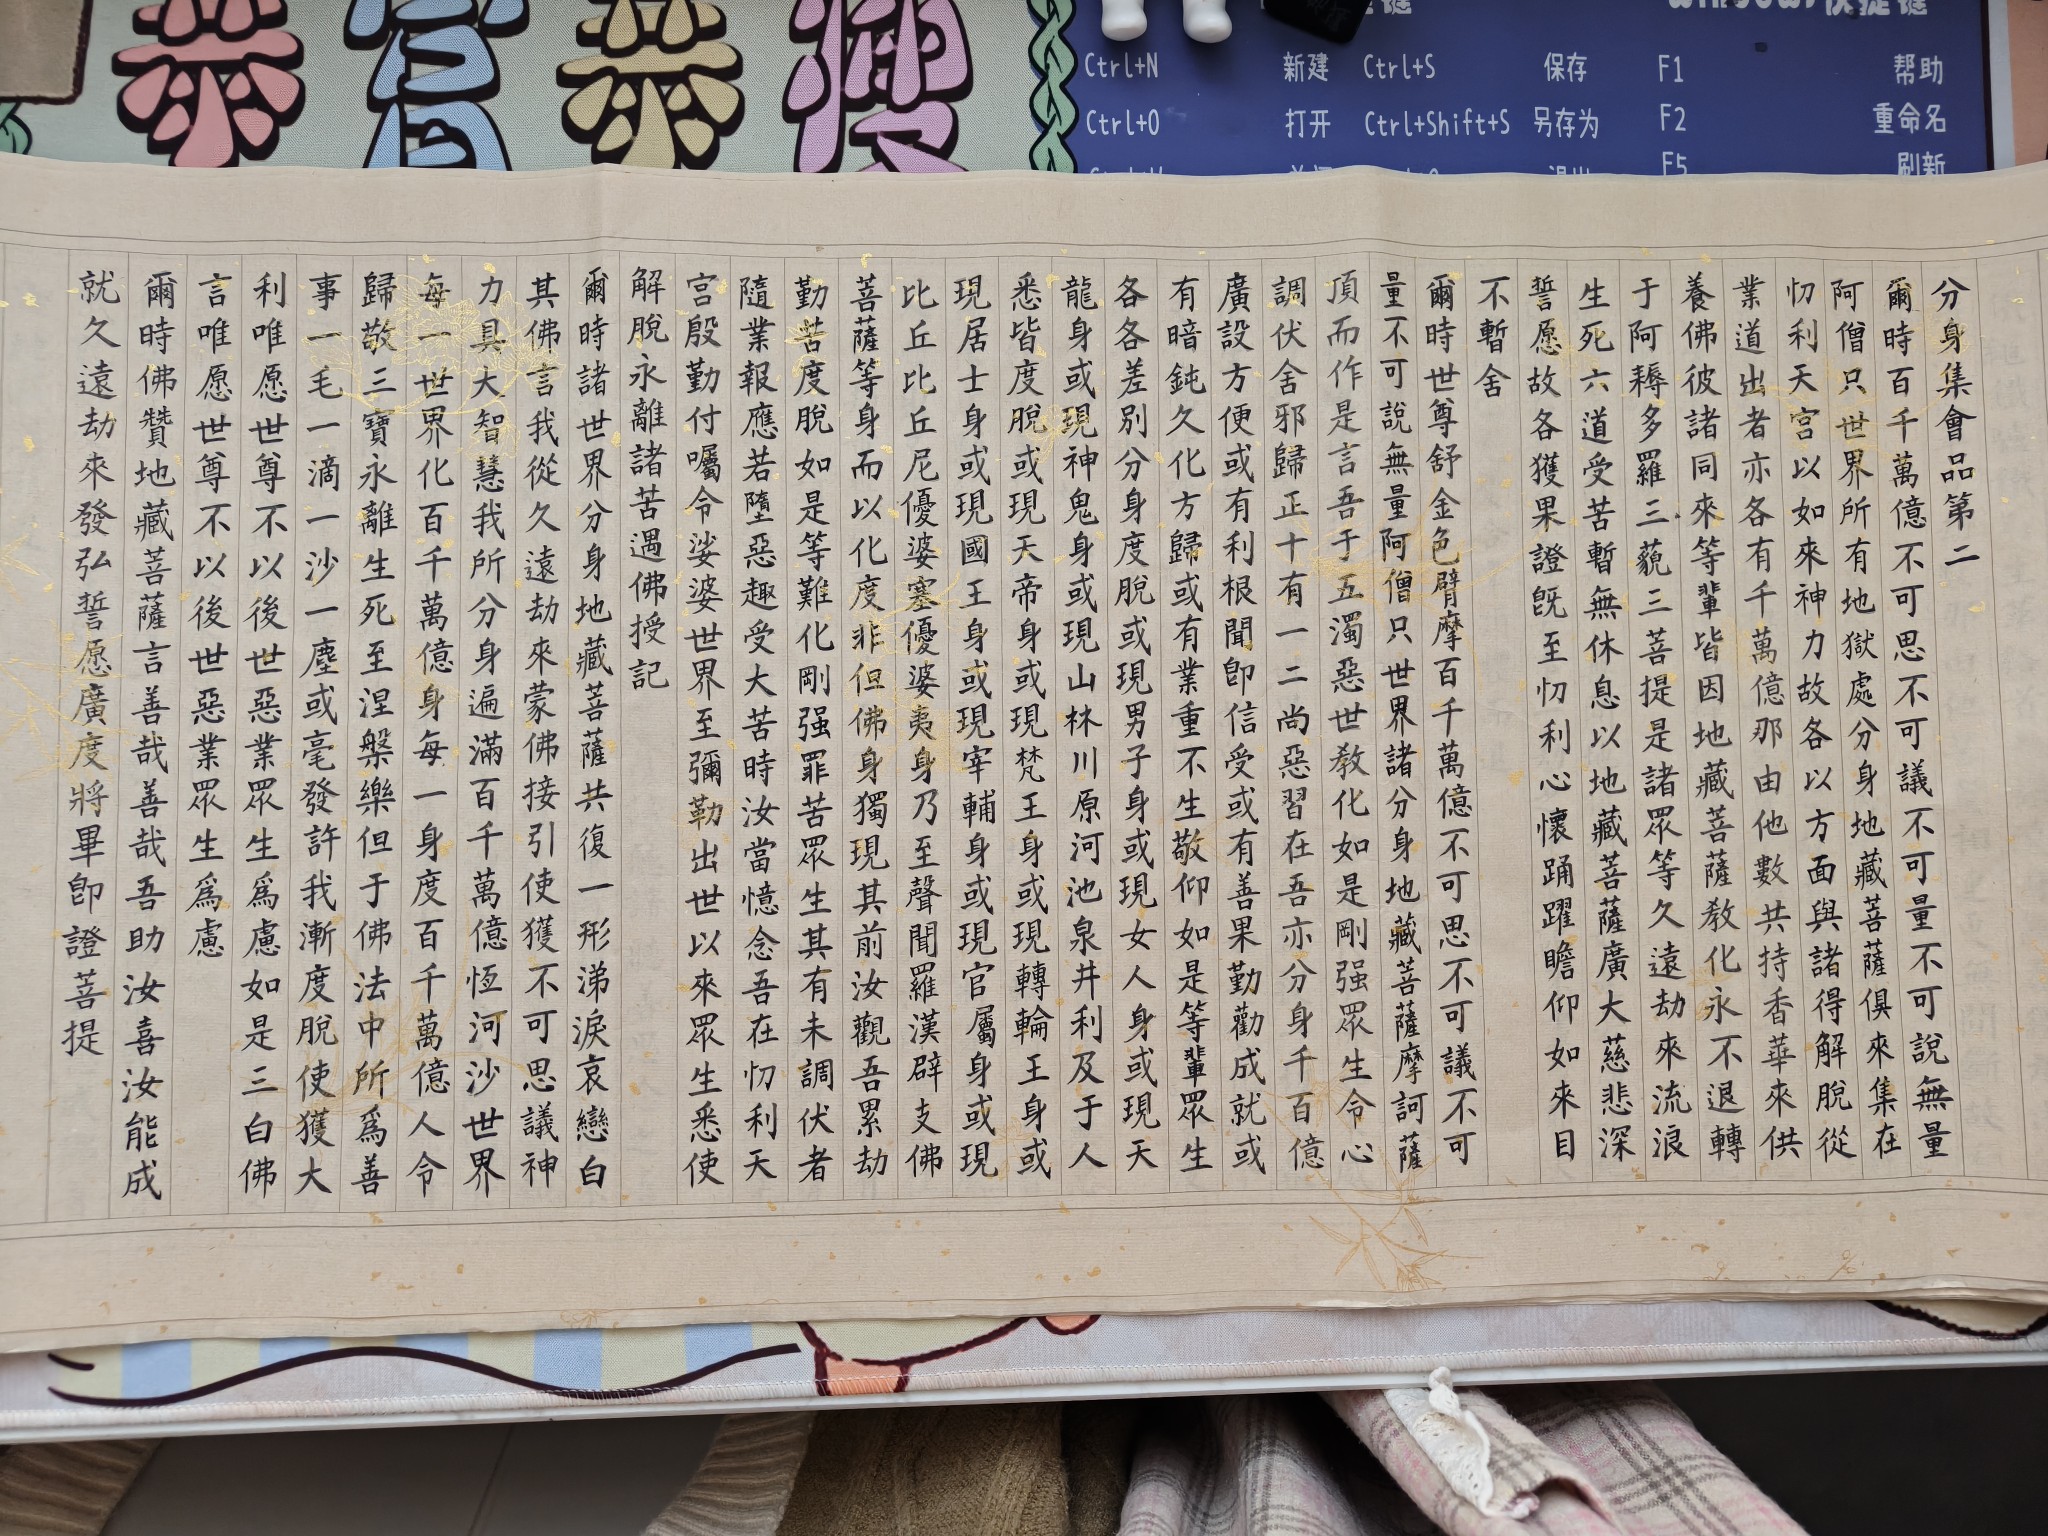 Ctrl+N 新建 Ctrl+S 保存 F1 帮助
Ctrl+O 打开 Ctrl+Shift+S 另存为 F2 重命名
F5 刷新
分身集會品第二
爾時百千萬億不可思不可議不可量不可說無量
阿僧只世界所有地獄處分身地藏菩薩俱來集在
忉利天宮以如來神力故各以方面與諸得解脫從
業道出者亦各有千萬億那由他數共持香華來供
養佛彼諸同來等輩皆因地藏菩薩教化永不退轉
于阿耨多羅三藐三菩提是諸眾等久遠劫來流浪
生死六道受苦暫無休息以地藏菩薩廣大慈悲深
誓愿故各獲果證既至忉利心懷踊躍瞻仰如來目
不暫舍
爾時世尊舒金色臂摩百千萬億不可思不可議不可
量不可說無量阿僧只世界諸分身地藏菩薩摩訶薩
頂而作是言吾于五濁惡世教化如是剛强眾生令心
調伏舍邪歸正十有一二尚惡習在吾亦分身千百億
廣設方便或有利根聞即信受或有善果勤勸成就或
有暗鈍久化方歸或有業重不生敬仰如是等輩眾生
各各差別分身度脫或現男子身或現女人身或現天
龍身或現神鬼身或現山林川原河池泉井利及于人
悉皆度脫或現天帝身或現梵王身或現轉輪王身或
現居士身或現國王身或現宰輔身或現官屬身或現
比丘比丘尼優婆塞優婆夷身乃至聲聞羅漢辟支佛
菩薩等身而以化度非但佛身獨現其前汝觀吾累劫
勤苦度脫如是等難化剛强罪苦眾生其有未調伏者
隨業報應若墮惡趣受大苦時汝當憶念吾在忉利天
宮殷勤付囑令娑婆世界至彌勒出世以來眾生悉使
解脫永離諸苦遇佛授記
爾時諸世界分身地藏菩薩共復一形涕淚哀戀白
其佛言我從久遠劫來蒙佛接引使獲不可思議神
力具大智慧我所分身遍滿百千萬億恆河沙世界
每一世界化百千萬億身每一身度百千萬億人令
歸敬三寶永離生死至涅槃樂但于佛法中所爲善
事一毛一滴一沙一塵或毫發許我漸度脫使獲大
利唯愿世尊不以後世惡業眾生爲慮如是三白佛
言唯愿世尊不以後世惡業眾生爲慮
爾時佛贊地藏菩薩言善哉善哉吾助汝喜汝能成
就久遠劫來發弘誓愿廣度將畢即證菩提